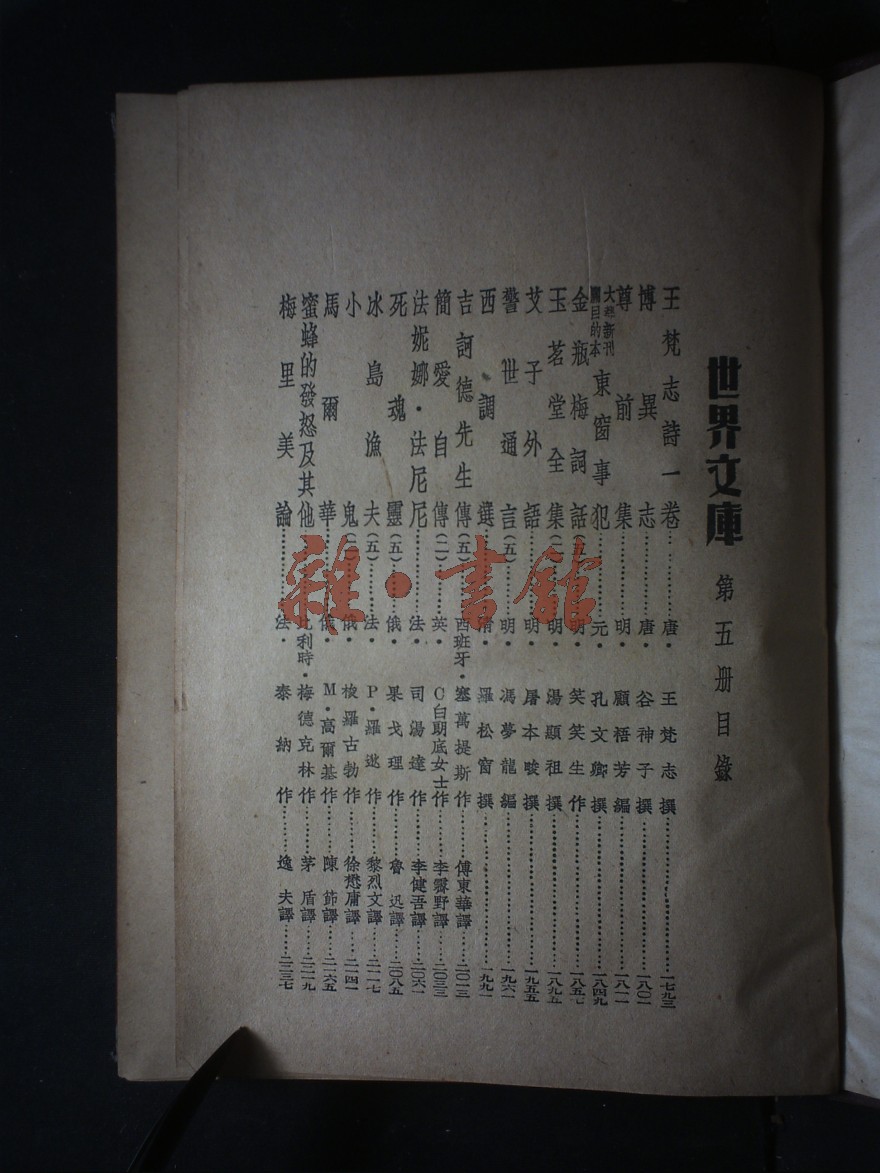 世界文庫 第五册目錄
王梵志詩一卷………唐·王梵志撰………一七九三
博異志………唐·谷神子撰………一八〇一
尊前集………明·顧梧芳編………一八一一
大都新刊關目的本 東窗事犯………元·孔文卿撰………一八四九
金瓶梅詞話(五)………明·笑笑生作………一八五七
玉茗堂全集(二)………明·湯顯祖撰………一八九五
艾子外語………明·屠本畯撰………一九五五
警世通言(五)………明·馮夢龍編………一九六一
西調選………清·羅松窗撰………一九九一
吉訶德先生傳(五)………西班牙·塞萬提斯作………傅東華譯………二〇一三
簡愛自傳(二)………英·C白朗底女士作………李霽野譯………二〇三三
法妮娜·法尼尼………法·司湯達作………李健吾譯………二〇六一
死魂靈(五)………俄·果戈理作………魯迅譯………二〇八五
冰島漁夫(五)………法·P·羅逖作………黎烈文譯………二一一七
小鬼………俄·梭羅古勃作………徐懋庸譯………二一四一
馬爾華………俄·M·高爾基作………陳節譯………二一六五
蜜蜂的發怒及其他………比利時·梅德克林作………茅盾譯………二二一九
梅里美論………法·泰納作………逸夫譯………二二三七
雜·書館